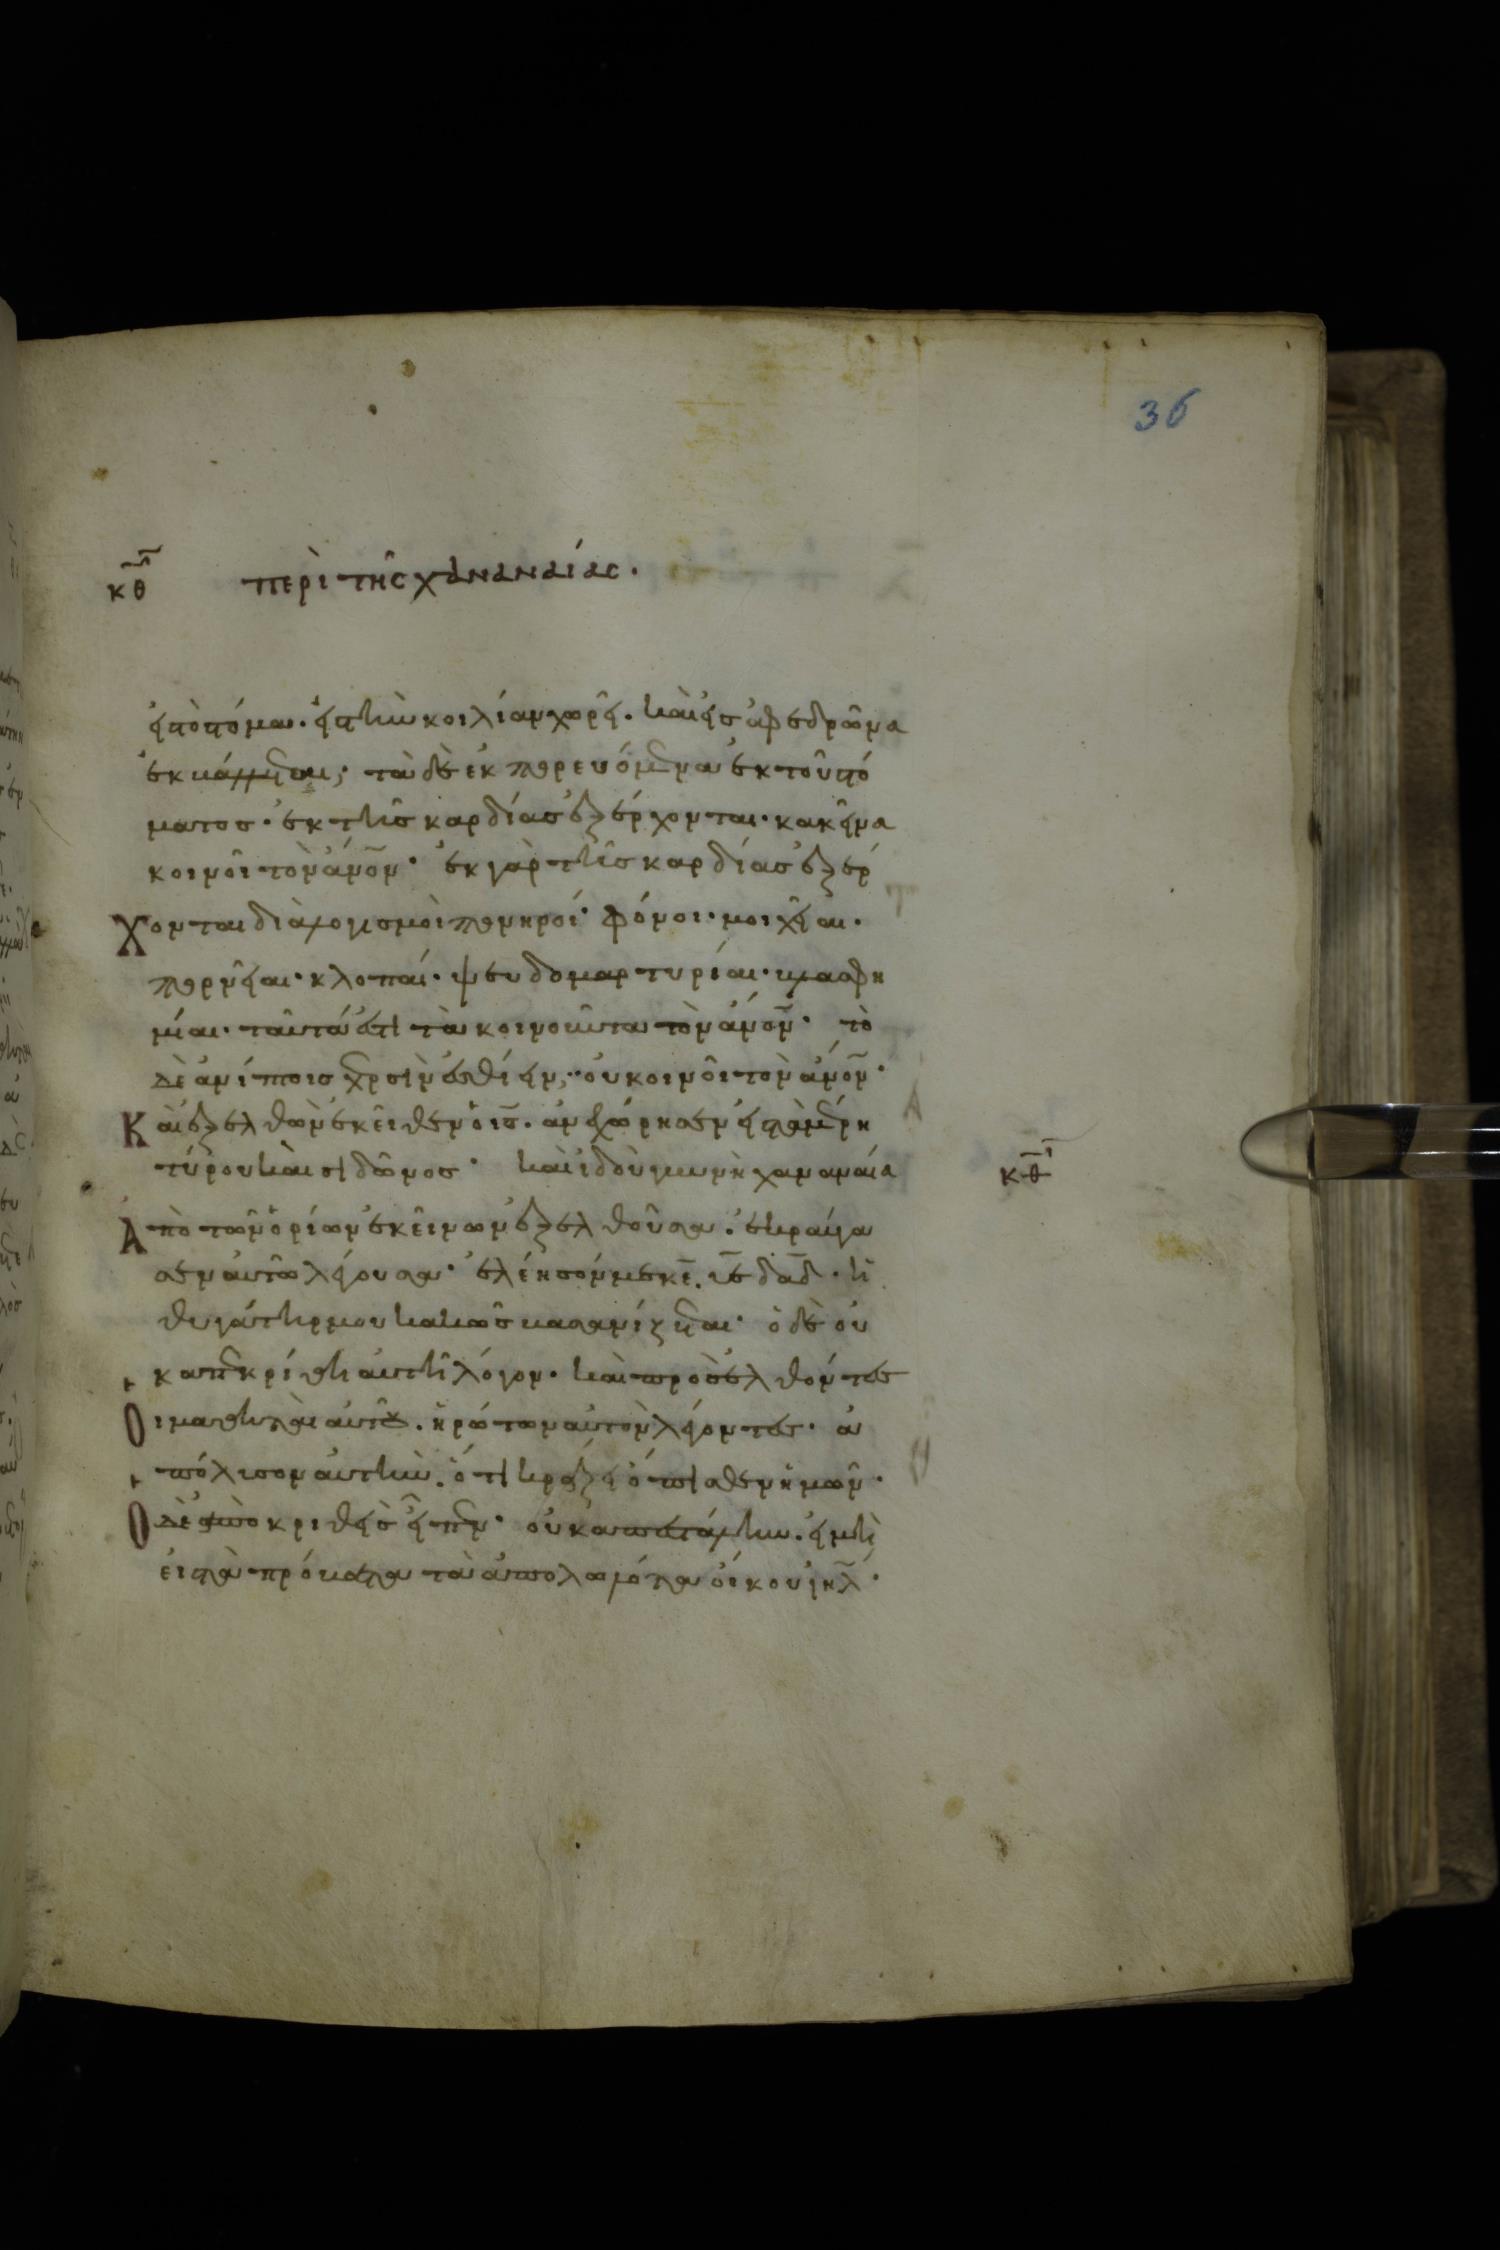 36
κθ περὶ τῆς χαναναίας.
εἰς τὸ στόμα. εἰς τὴν κοιλίαν χωρεῖ. καὶ εἰς ἀφεδρῶνα
ἐκβάλλεται; τὰ δὲ ἐκπορευόμενα ἐκ τοῦ στό
ματος. ἐκ τῆς καρδίας ἐξέρχονται. κακεῖνα
κοινοῖ τὸν ἀνο̅ν· ἐκ γὰρ τῆς καρδίας ἐξέρ
χονται διαλογισμοὶ πονηροί· φόνοι· μοιχεῖαι.
πορνεῖαι· κλοπαί· ψευδομαρτυρίαι· βλασφη
μίαι· ταῦτά ἐστι τὰ κοινοῦντα τὸν ἀνο̅ν· τὸ
δὲ ἀνίπτοις χερσὶν ἐσθίειν, οὐ κοινοῖ τὸν ἀνο̅ν·
Καὶ ἐξελθὼν ἐκεῖθεν ὁ ις̅. ἀνεχώρησεν εἰς τὰ μέρη
τύρου καὶ σιδῶνος· καὶ ἰδοὺ γυνὴ χαναναία κθ
Ἀπὸ τῶν ὁρίων ἐκείνων ἐξελθοῦσα. ἐκραύγα
σεν αὐτῶ λέγουσα· ἐλέησόν με κε̅. υἱὲ δα̅δ. ἡ
θυγάτηρ μου κακῶς δαιμονίζεται· ὁ δὲ οὐ
κ ἀπεκρίθη αὐτῆ λόγον. καὶ προσελθόντες
Οἱ μαθηταὶ αὐτοῦ. ἠρώτων αὐτὸν λέγοντες· ἀ
πόλυσον αὐτήν. ὅτι κράζει ὄπισθεν ἡμῶν·
Ὁ δὲ ἀποκριθεὶς εἶπεν· οὐκ ἀπεστάλην. εἰ μὴ
εἰς τὰ πρόβατα τὰ ἀπολωλότα οἴκου ιη̅λ·